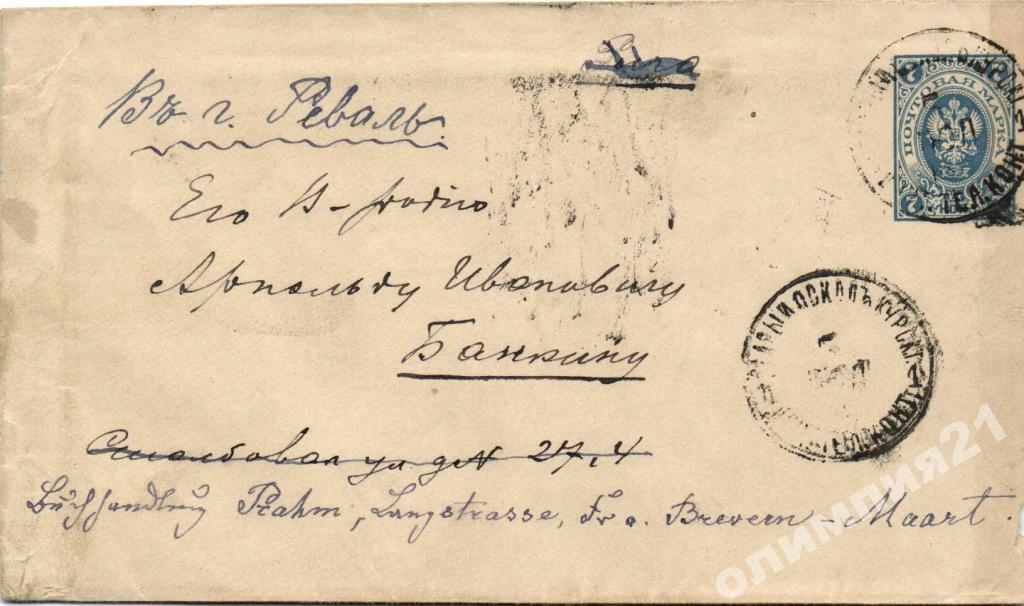 Рига
Въ г. Реваль
Его В-родію
Арнольду Ивановичу
Банкину
Столбовая ул д № 27, 4
Buchhandlung Prahm, Langstrasse, Fr v. Brevern - Maart.
ПОЧТОВАЯ МАРКА
7 7
СТАРЫЙ ОСКОЛЪ КУРСК.
ТЕЛ. КОНТ.
1
олимпия21